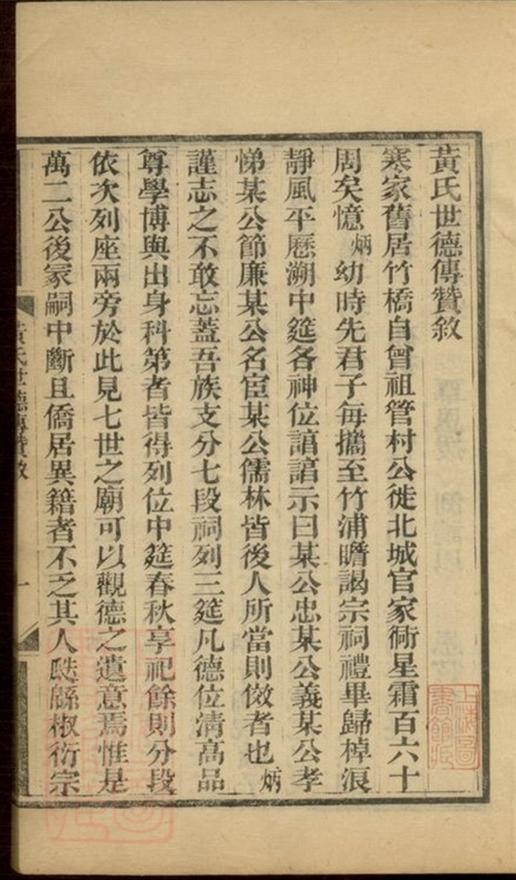 黃氏世德傳贊敘
寒家舊居竹橋自曾祖管村公徙北城官家衕星霜百六十
周矣憶炳幼時先君子每攜至竹浦瞻謁宗祠禮畢歸棹浪
靜風平歷溯中筵各神位諳諳示曰某公忠某公義某公孝
悌某公節廉某公名宦某公儒林皆後人所當則傚者也炳
謹志之不敢忘蓋吾族支分七段祠列三筵凡德位清高品
尊學博與出身科第者皆得列位中筵春秋享祀餘則分段
依次列座兩旁於此見七世之廟可以觀德之遺意焉惟是
萬二公後冢嗣中斷且僑居異籍者不乏其人瓞緜椒衍宗
黃氏世德傳贊敘
一
上海圖書館藏